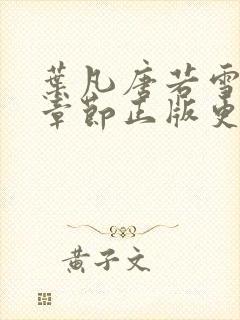 葉凡唐若雪
章節正版更
黄子文